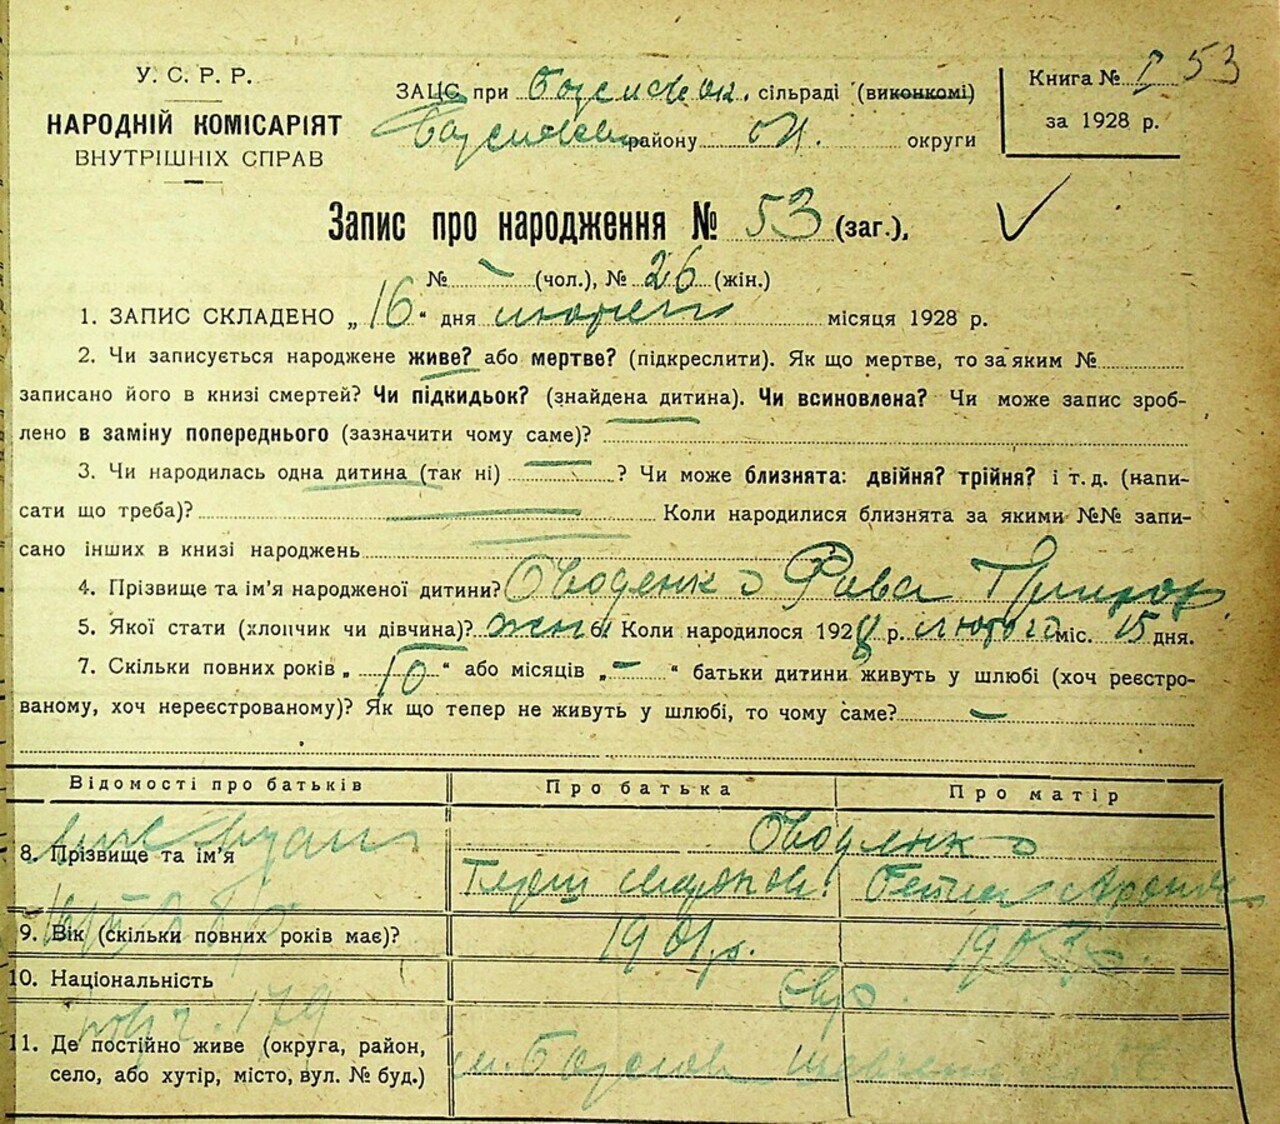 У. С. Р. Р.
НАРОДНІЙ КОМІСАРІЯТ
ВНУТРІШНІХ СПРАВ
ЗАЦС при сільраді (виконкомі)
району округи
Книга № I 53
за 1928 р.
Запис про народження № 53 (заг.),
№ - (чол.), № 26 (жін.)
1. ЗАПИС СКЛАДЕНО „16“ дня лютого місяця 1928 р.
2. Чи записується народжене живе? або мертве? (підкреслити). Як що мертве, то за яким №
записано його в книзі смертей? Чи підкидьок? (знайдена дитина). Чи всиновлена? Чи може запис зроб-
лено в заміну попереднього (зазначити чому саме)?
3. Чи народилась одна дитина (так ні) ? Чи може близнята: двійня? трійня? і т. д. (напи-
сати що треба)? Коли народилися близнята за якими №№ запи-
сано інших в книзі народжень
4. Прізвище та ім’я народженої дитини? Оводенко
5. Якої стати (хлопчик чи дівчина)? жін 6. Коли народилося 1928 р. лютого міс. 15 дня.
7. Скільки повних років „ “ або місяців „-“ батьки дитини живуть у шлюбі (хоч реєстро-
ваному, хоч нереєстрованому)? Як що тепер не живуть у шлюбі, то чому саме? -
Відомості про батьків Про батька Про матір
8. Прізвище та ім’я Оводенко
9. Вік (скільки повних років має)? 1901 р.
10. Національність Євр.
11. Де постійно живе (округа, район,
село, або хутір, місто, вул. № буд.) м. Богуслав